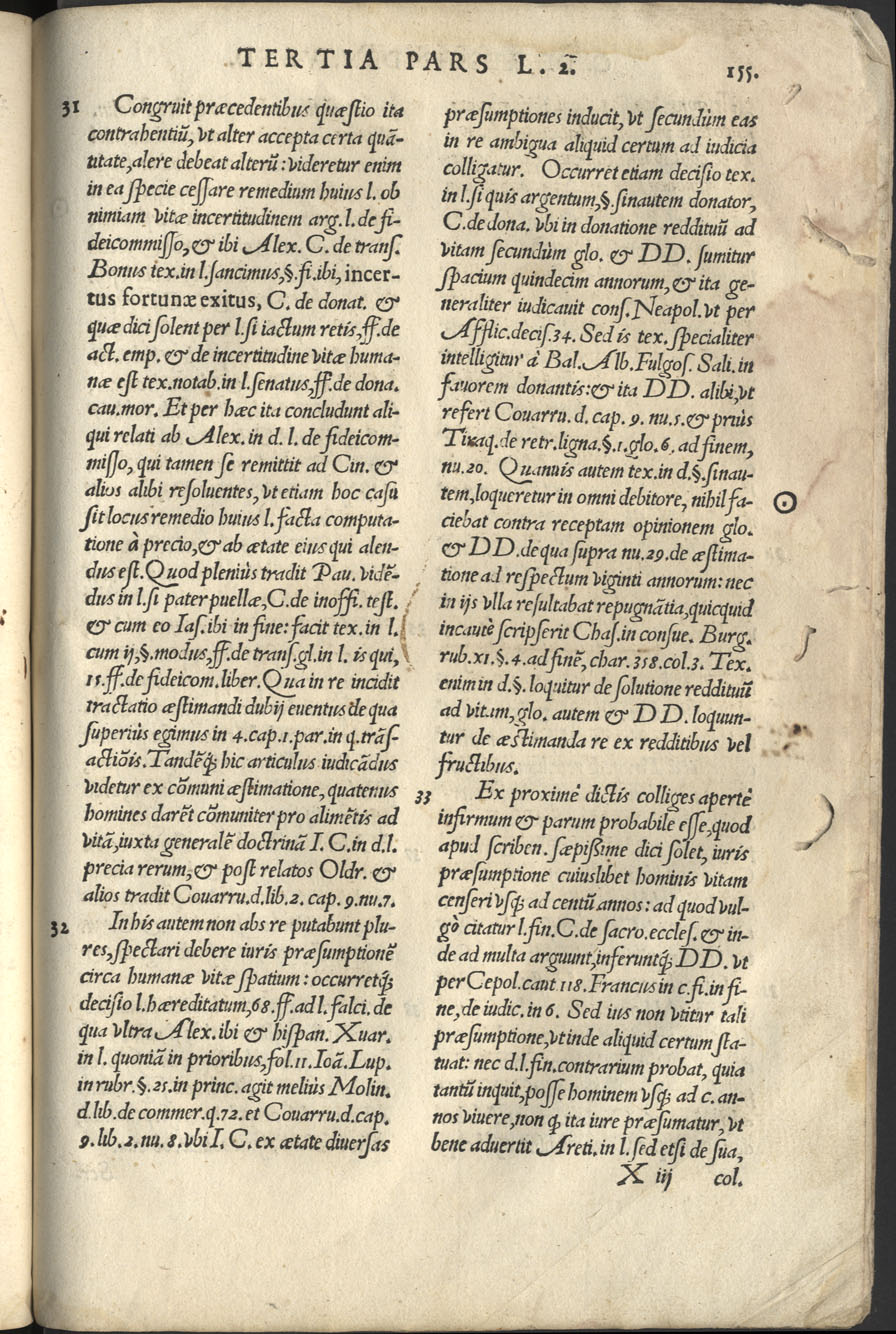 TERTIA PARS L. 2.
155.
31 Congruit præcedentibus quæstio ita
contrahentiũ, vt alter accepta certa quã-
titate, alere debeat alterũ : videretur enim
in ea specie cessare remedium huius l. ob
nimiam vitæ incertitudinem arg. l. de fi-
deicommisso, & ibi Alex. C. de trans.
Bonus tex. in l. sancimus, §. fi. ibi, incer-
tus fortunæ exitus, C. de donat. &
quæ dici solent per l. si iactum retis, ff. de
act. emp. & de incertitudine vitæ huma-
næ est tex. notab. in l. senatus, ff. de dona.
cau. mor. Et per hæc ita concludunt ali-
qui relati ab Alex. in d. l. de fideicom-
misso, qui tamen se remittit ad Cin. &
alios alibi resoluentes, vt etiam hoc casu
sit locus remedio huius l. facta computa-
tione à precio, & ab ætate eius qui alen-
dus est. Quod pleniùs tradit Pau. vidẽ-
dus in l. si pater puellæ, C. de inoffi. test.
& cum eo Ias. ibi in fine: facit tex. in l.
cum ij, §. modus, ff. de trans. gl. in l. is qui,
15. ff. de fideicom. liber. Qua in re incidit
tractatio æstimandi dubij euentus de qua
superiùs egimus in 4. cap. 1. par. in q. trãs-
actiõis. Tandẽq; hic articulus iudicãdus
videtur ex cõmuni æstimatione, quatenus
homines darẽt cõmuniter pro alimẽtis ad
vitã, iuxta generalẽ doctrinã I. C. in d. l.
precia rerum, & post relatos Oldr. &
alios tradit Couarru. d. lib. 2. cap. 9. nu. 7.
32 In his autem non abs re putabunt plu-
res, spectari debere iuris præsumptionẽ
circa humanæ vitæ spatium : occurretq;
decisio l. hæreditatum, 68. ff. ad l. falci. de
qua vltra Alex. ibi & hispan. Xuar.
in l. quoniã in prioribus, fol. 11. Ioã. Lup.
in rubr. §. 25. in princ. agit meliùs Molin.
d. lib. de commer. q. 72. et Couarru. d. cap.
9. lib. 2. nu. 8. vbi I. C. ex ætate diuersas
præsumptiones inducit, vt secundùm eas
in re ambigua aliquid certum ad iudicia
colligatur. Occurret etiam decisio tex.
in l. si quis argentum, §. sinautem donator,
C. de dona. vbi in donatione reddituũ ad
vitam secundùm glo. & DD. sumitur
spacium quindecim annorum, & ita ge-
neraliter iudicauit cons. Neapol. vt per
Afflic. decis. 34. Sed is tex. specialiter
intelligitur à Bal. Alb. Fulgos. Sali. in
fauorem donantis: & ita DD. alibi, vt
refert Couarru. d. cap. 9. nu. 5. & priùs
Tiraq. de retr. ligna. §. 1. glo. 6. ad finem,
nu. 20. Quanuis autem tex. in d. §. sinau-
tem, loqueretur in omni debitore, nihil fa-
ciebat contra receptam opinionem glo.
& DD. de qua supra nu. 29. de æstima-
tione ad respectum viginti annorum: nec
in ijs vlla resultabat repugnãtia, quicquid
incautè scripserit Chas. in consue. Burg.
rub. XI. §. 4. ad finẽ, char. 358. col. 3. Tex.
enim in d. §. loquitur de solutione reddituũ
ad vitam, glo. autem & DD. loquun-
tur de æstimanda re ex redditibus vel
fructibus.
33 Ex proximè dictis colliges apertè
infirmum & parum probabile esse, quod
apud scriben. sæpißime dici solet, iuris
præsumptione cuiuslibet hominis vitam
censeri vsq; ad centũ annos : ad quod vul-
gò citatur l. fin. C. de sacro. eccles. & in-
de ad multa arguunt, inferuntq; DD. vt
per Cepol. caut. 118. Francus in c. fi. in fi-
ne, de iudic. in 6. Sed ius non vtitur tali
præsumptione, vt inde aliquid certum sta-
tuat: nec d. l. fin. contrarium probat, quia
tantũ inquit, posse hominem vsq; ad c. an-
nos viuere, non q, ita iure præsumatur, vt
bene aduertit Areti. in l. sed etsi de sua,
X iij col.